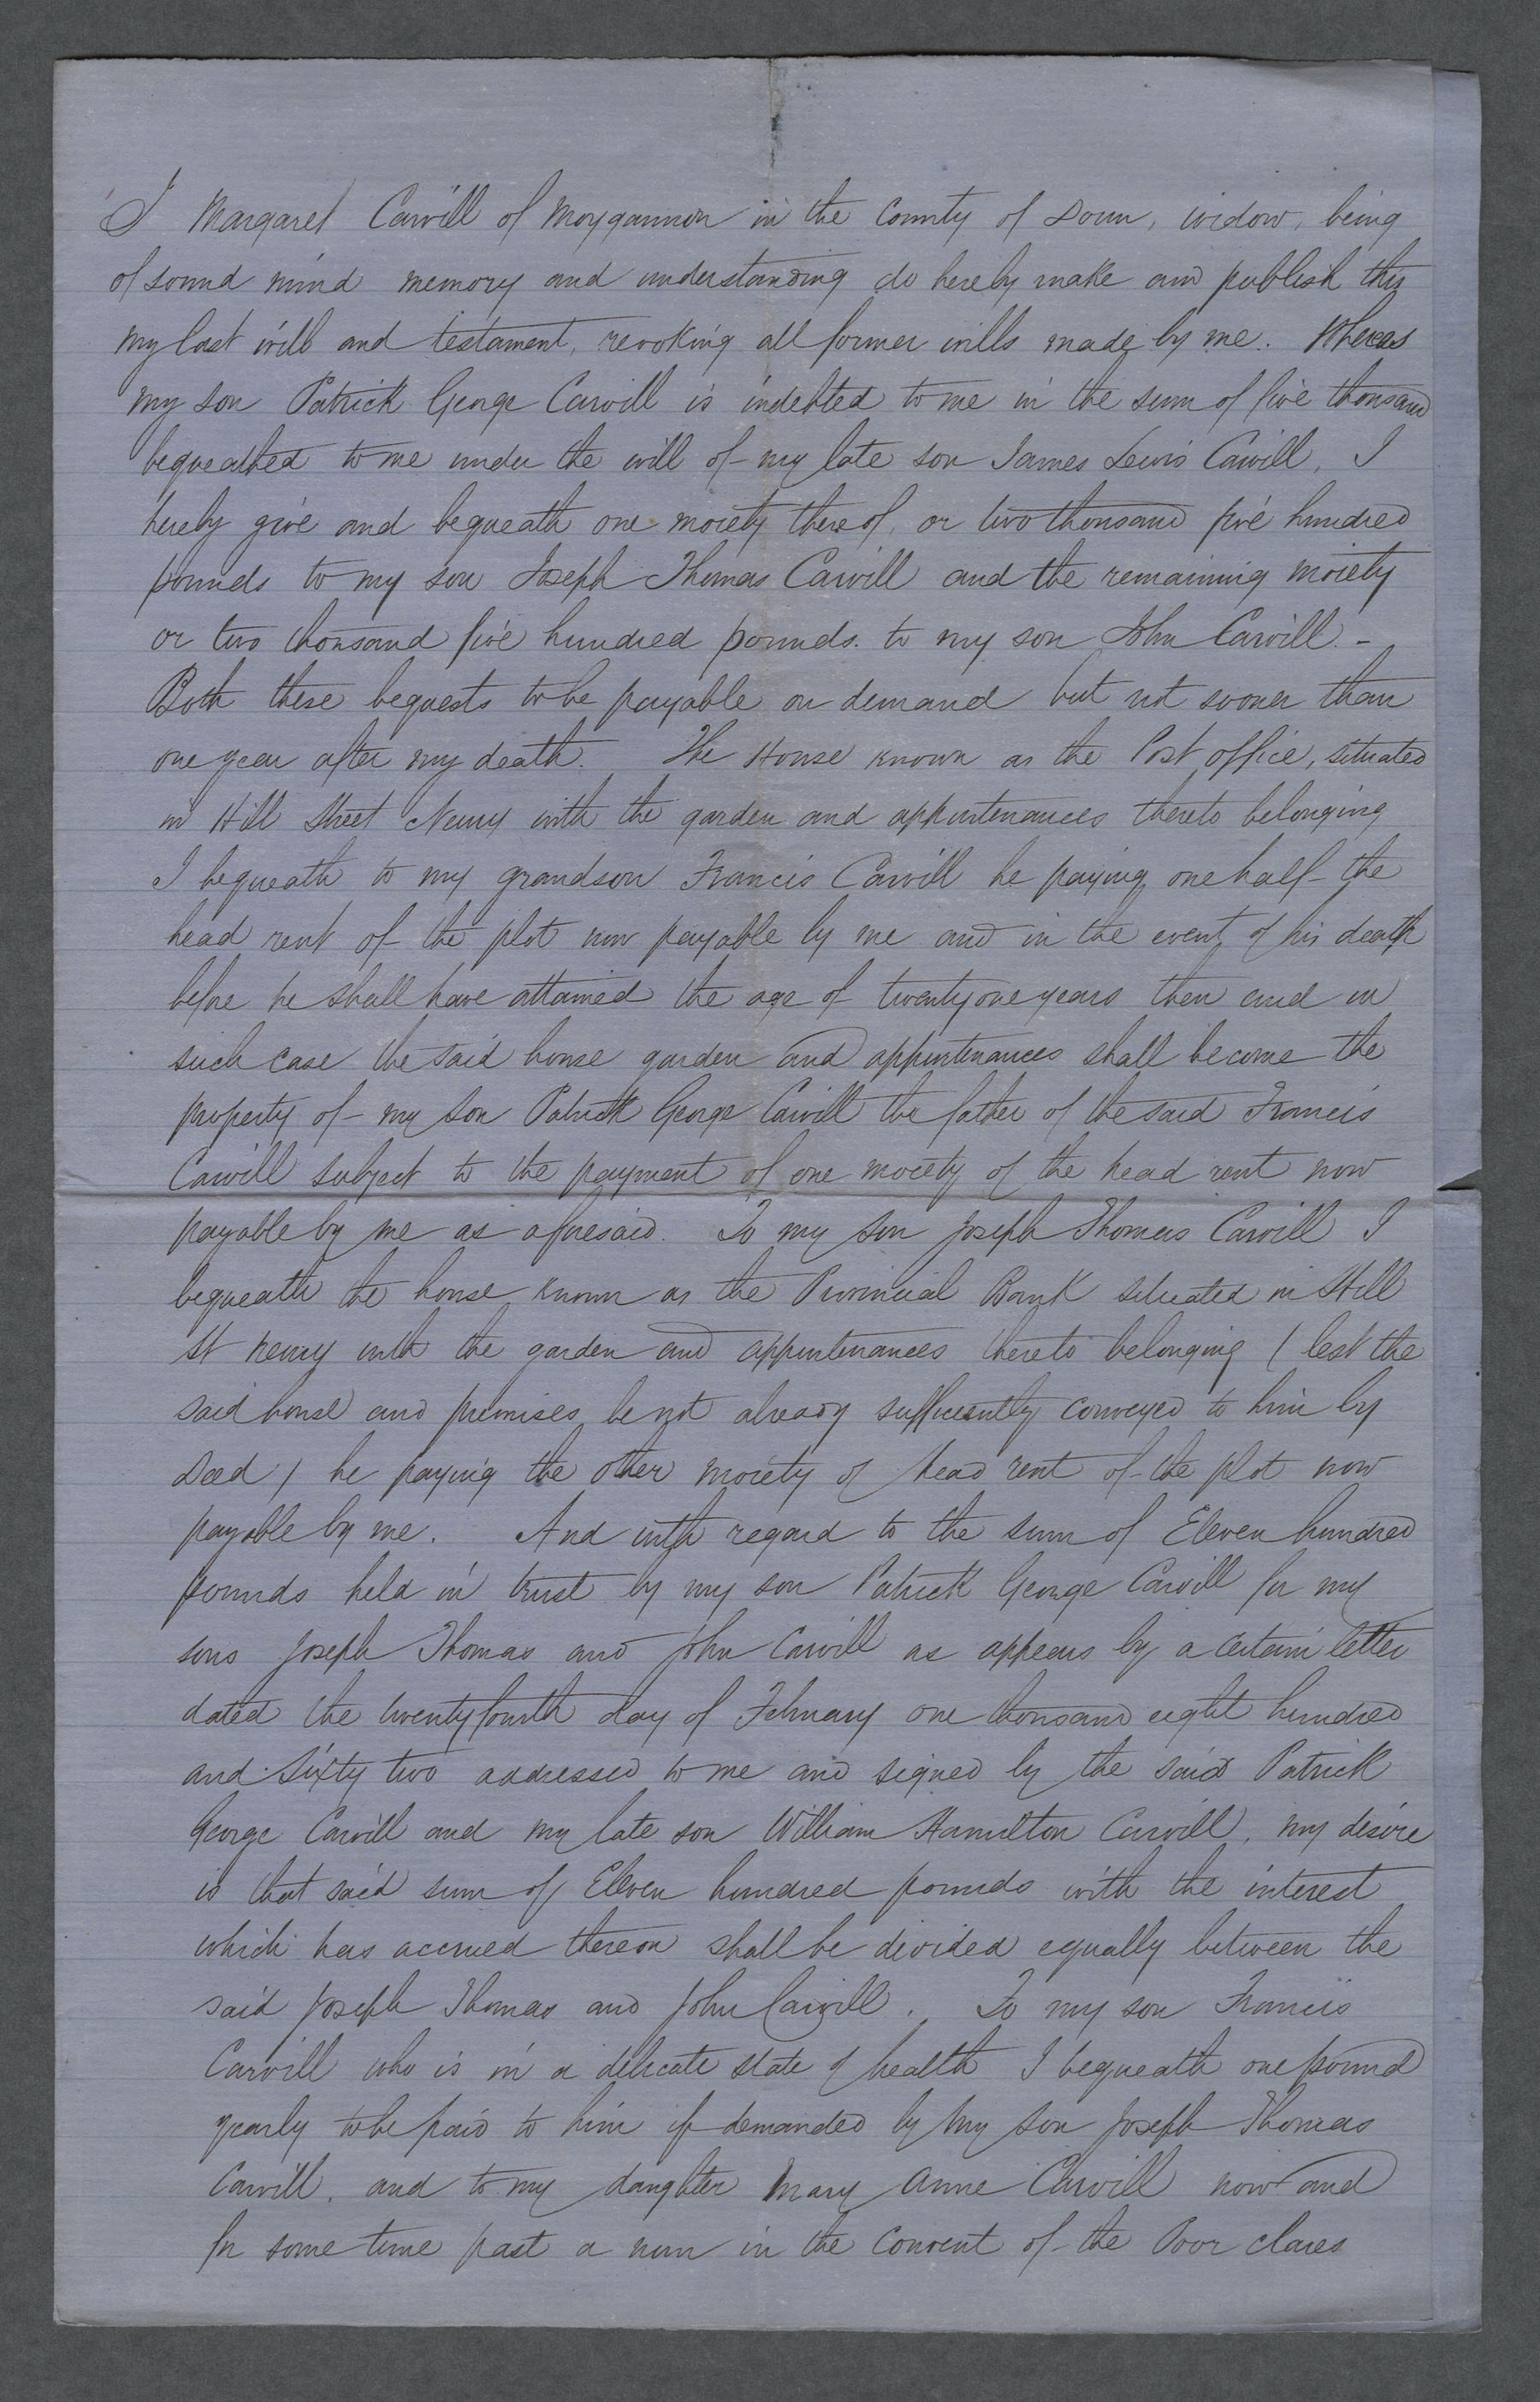 I Margaret Carvill of Moygannon in the County of Down, widow, being
of sound mind memory and understanding do hereby make and publish this
my last will and testament, revoking all former wills made by me. Whereas
my son Patrick George Carvill is indebted to me in the sum of five thousand
bequeathed to me under the will of my late son James Lewis Carvill, I
hereby give and bequeath one moiety thereof, or two thousand five hundred
pounds to my son Joseph Thomas Carvill and the remaining moiety
or two thousand five hundred pounds. to my son John Carvill. -
Both these bequests to be payable on demand but not sooner than
one year after my death. The House known as the Post office, situated
in Hill Street Newry with the garden and appurtenances thereto belonging
I bequeath to my grandson Francis Carvill he paying one half the
head rent of the plot now payable by me and in the event of his death
before he shall have attained the age of twenty one years then and in
such case the said house garden and appurtenances shall become the
property of my son Patrick George Carvill the father of the said Francis
Carvill subject to the payment of one moiety of the head rent now
payable by me as aforesaid. To my son Joseph Thomas Carvill I
bequeath the house known as the Provincial Bank situated in Hill
St Newry with the garden and appurtenances thereto belonging ( lest the
said house and premises be not already sufficiently conveyed to him by
Deed ) he paying the other moiety of head rent of the plot now
payable by me. And with regard to the sum of Eleven hundred
pounds held in trust by my son Patrick George Carvill for my
sons Joseph Thomas and John Carvill as appears by a certain letter
dated the twenty fourth day of February one thousand eight hundred
and sixty two addressed to me and signed by the said Patrick
George Carvill and my late son William Hamilton Carvill, my desire
is that said sum of Eleven hundred pounds with the interest
which has accrued thereon shall be divided equally between the
said Joseph Thomas and John Carvill. To my son Francis
Carvill who is in a delicate state of health I bequeath one pound
yearly to be paid to him if demanded by my son Joseph Thomas
Carvill. and to my daughter Mary Anne Carvill now and
for some time past a nun in the Convent of the Poor Clares